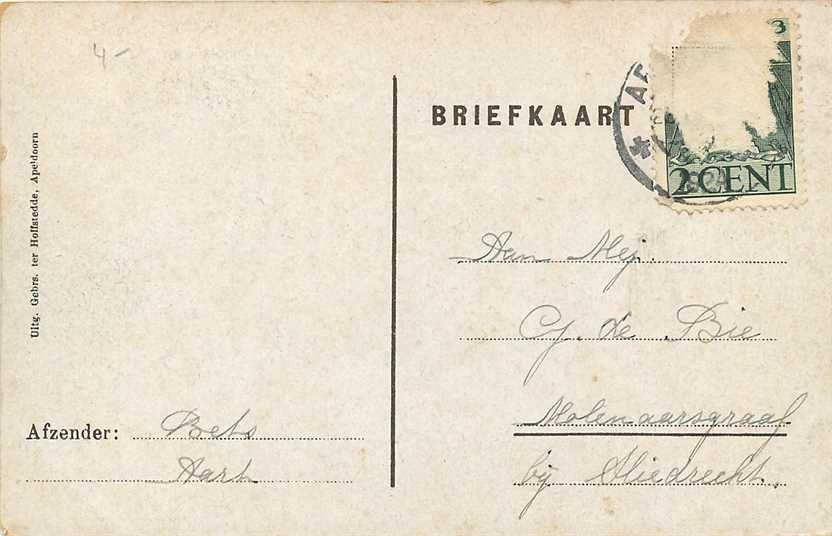 4-
BRIEFKAART
AP
3
2 CENT
Uitg. Gebrs. ter Hoffstedde, Apeldoorn
Aan Mej.
Cj. de Bie
Molenaarsgraaf
bij Sliedrecht.
Afzender: Bets
Aart